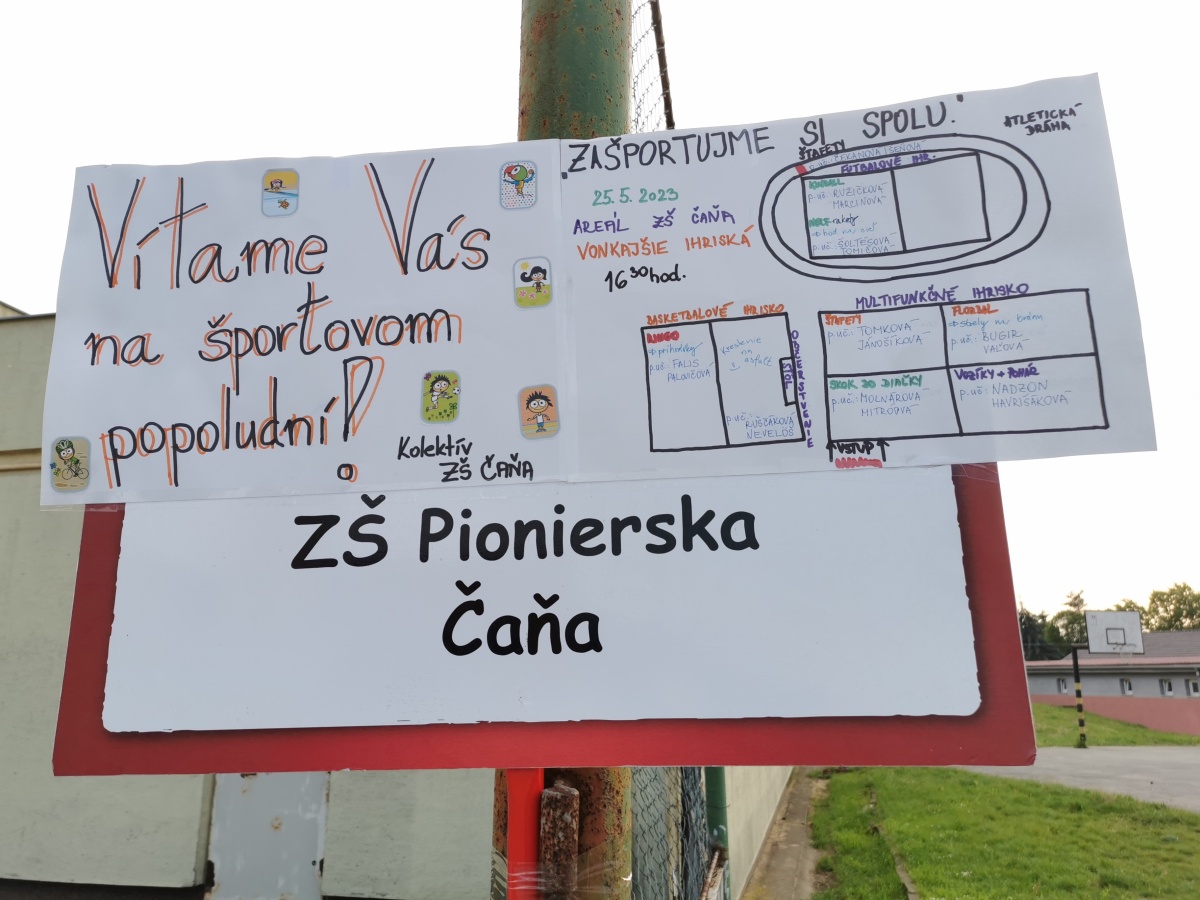 Vítame Vás
na športovom
popoludní!
Kolektív
ZŠ ČAŇA
"ZAŠPORTUJME SI SPOLU."
25.5.2023
AREÁL ZŠ ČAŇA
VONKAJŠIE IHRISKÁ
16³⁰ hod.
ATLETICKÁ
DRÁHA
ŠTAFETY
p.uč.: ČEKANOVÁ
FUTBALOVÉ IHR.
p.uč.: RUŽIČKOVÁ
MARCINOVÁ
rakety
p.uč.: ŠOLTÉSOVÁ
TOMČOVÁ
BASKETBALOVÉ IHRISKO
RINGO
prihrávky
p.uč.: FALIS
PALOVIČOVÁ
Kreslenie
na
asfalt
p.uč.: RUŠČÁKOVÁ
NEVELOŠ
STÔL
OBČERSTVENIE
MULTIFUNKČNÉ IHRISKO
ŠTAFETY
p.uč.: TOMKOVÁ
JÁNOŠÍKOVÁ
FLORBAL
strely na bránu
p.uč.: BUGIR
VAĽOVÁ
SKOK DO DIAĽKY
p.uč.: MOLNÁROVÁ
MITROVÁ
VOZÍKY + POHÁR
p.uč.: NADZON
HAVRIŠÁKOVÁ
VSTUP
ZŠ Pionierska
Čaňa